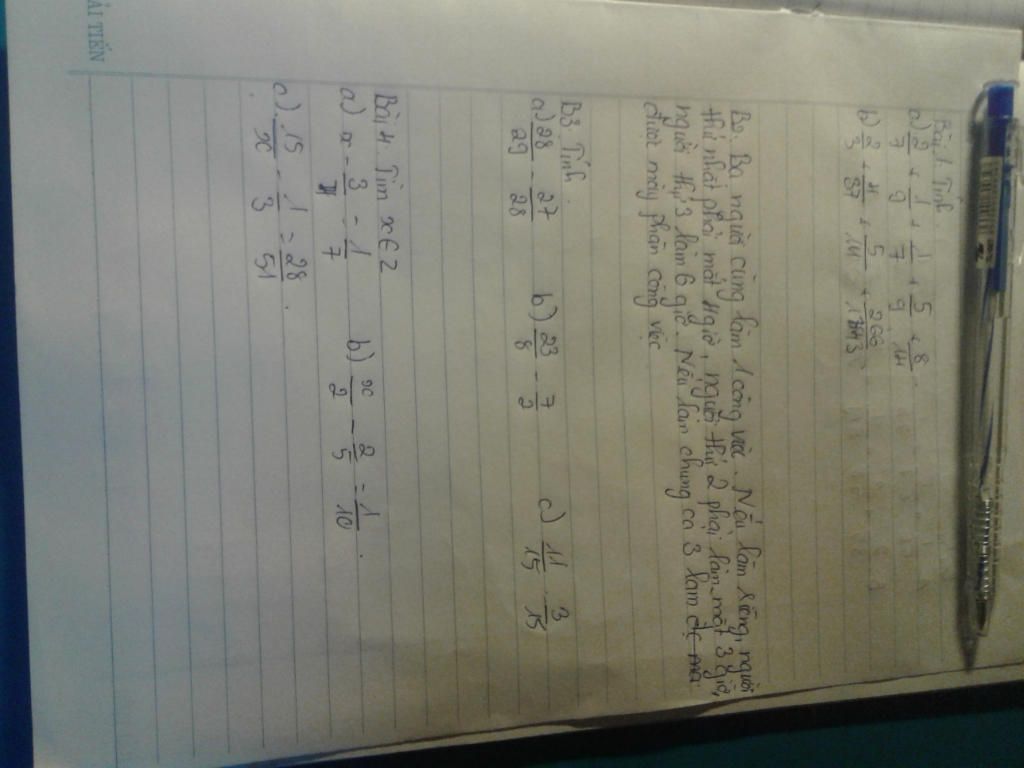 Bài 1. Tính.
a) 2/7 + 1/9 + 1/7 + 5/9 + 8/14
b) 2/3 + 4/37 + 5/111 + 266/
B2. Ba người cùng làm 1 công việc. Nếu làm riêng, người
thứ nhất phải mất 4 giờ, người thứ 2 phải làm mất 3 giờ,
người thứ 3 làm 6 giờ. Nếu làm chung cả 3 làm
được mấy phần công việc
B3. Tính.
a) 28/29 - 27/28 b) 23/8 - 7/2 c) 11/15 - 3/15
Bài 4. Tìm x ∈ Z
a) x - 3/7 = 1/7 b) x/2 - 2/5 = 1/10.
c) 15/x - 1/3 = 28/51.
ẢI TIẾN